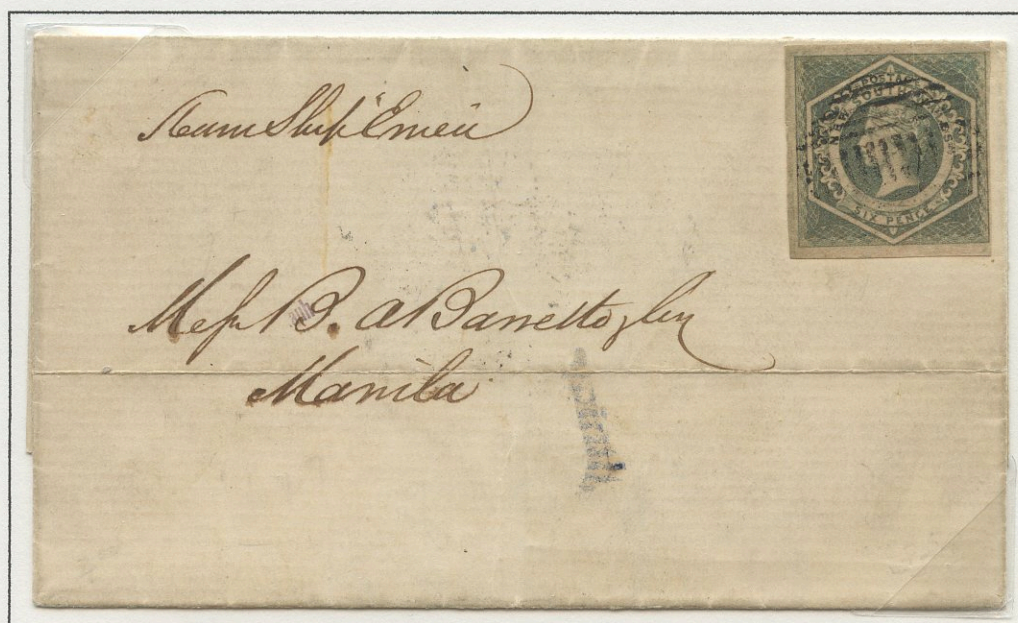 Steam Ship "Emeu
POSTAGE
NEW SOUTH WALES
SIX PENCE
Messrs B. A Barretto y Cia
Manila